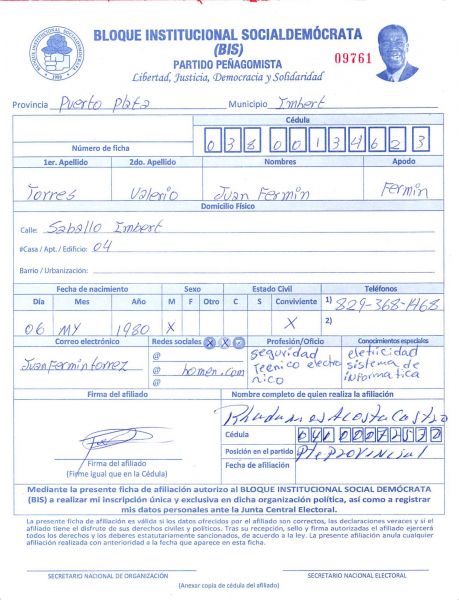 BLOQUE INSTITUCIONAL SOCIALDEMÓCRATA
(BIS)
PARTIDO PEÑAGOMISTA
Libertad, Justicia, Democracia y Solidaridad
09761
Provincia Puerto Plata Municipio Imbert
Cédula
Número de ficha 038 0013462 3
1er. Apellido 2do. Apellido Nombres Apodo
Torres Valerio Juan Fermin Fermin
Domicilio Físico
Calle: Saballo Imbert
#Casa / Apt. / Edificio: 04
Barrio / Urbanización:
Fecha de nacimiento Sexo Estado Civil Teléfonos
Día Mes Año M F Otro C S Conviviente 1) 829-368-1468
06 MY 1980 X X 2)
Correo electrónico Redes sociales Profesión/Oficio Conocimientos especiales
Juan Fermin torrez @ @ homen.com @ seguridad Tecnico electro nico eletricidad sistema de informatica
Firma del afiliado Nombre completo de quien realiza la afiliación
Acosta Castro
Cédula
Posición en el partido Pte Provincial
Fecha de afiliación
Firma del afiliado
(Firme igual que en la Cédula)
Mediante la presente ficha de afiliación autorizo al BLOQUE INSTITUCIONAL SOCIAL DEMÓCRATA
(BIS) a realizar mi inscripción única y exclusiva en dicha organización política, así como a registrar
mis datos personales ante la Junta Central Electoral.
La presente ficha de afiliación es válida si los datos ofrecidos por el afiliado son correctos, las declaraciones veraces y si el
afiliado tiene el disfrute de sus derechos civiles y políticos. Tras su recepción, sello y firma autorizadas el afiliado ejercerá
todos los derechos y los deberes estatutariamente sancionados, de acuerdo a la ley. La presente afiliación anula cualquier
afiliación realizada con anterioridad a la fecha que aparece en esta ficha.
SECRETARIO NACIONAL DE ORGANIZACIÓN SECRETARIO NACIONAL ELECTORAL
(Anexar copia de cédula del afiliado)